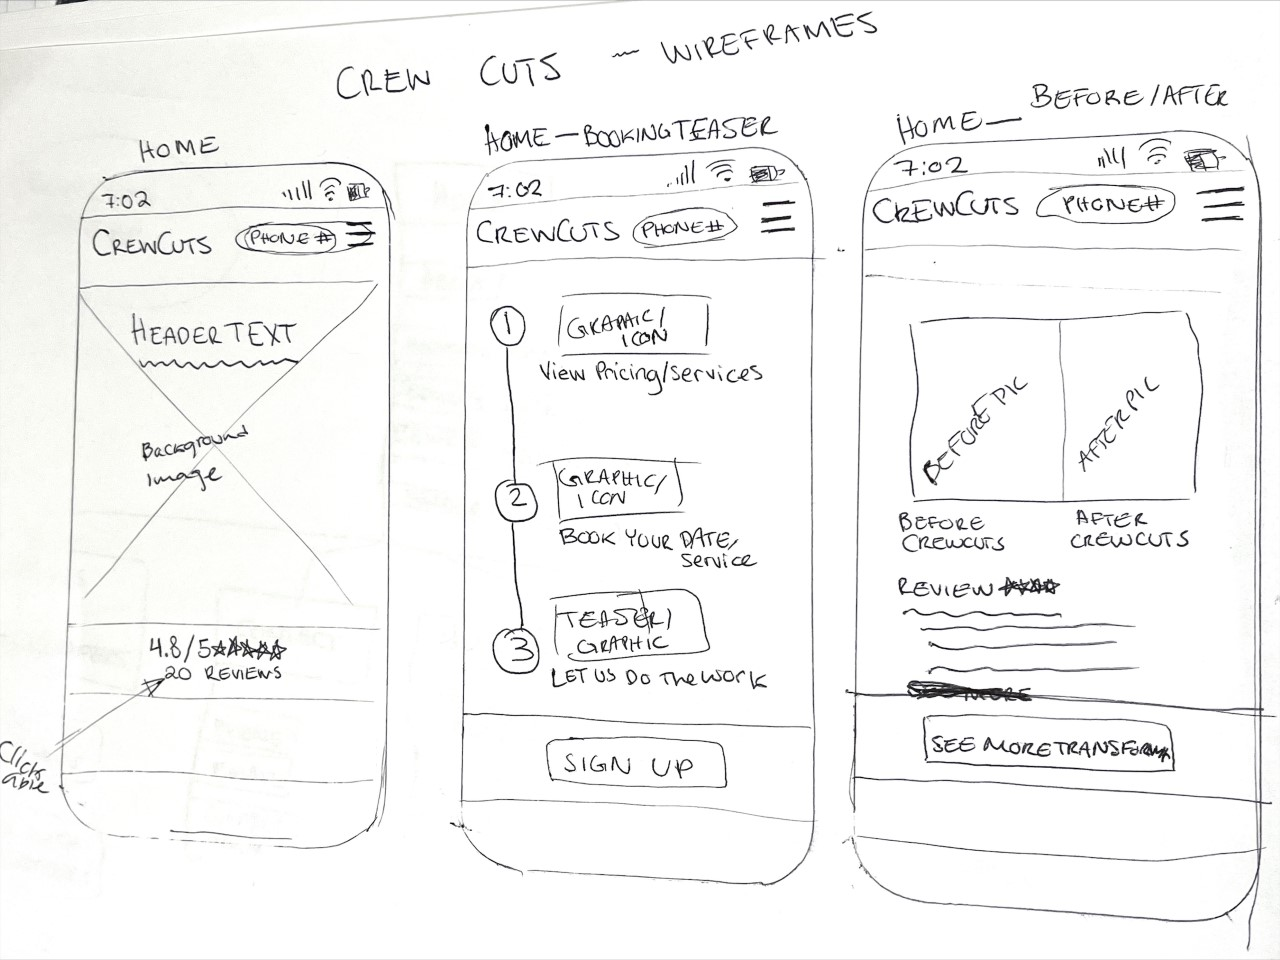 CREW CUTS — WIREFRAMES
HOME
7:02
CREWCUTS
PHONE #
HEADER TEXT
Background
image
4.8/5
20 REVIEWS
Click
able
HOME — BOOKING TEASER
7:02
CREWCUTS
PHONE#
1
GRAPHIC/
ICON
View Pricing/services
2
GRAPHIC/
ICON
BOOK YOUR DATE/
Service
3
TEASER/
GRAPHIC
LET US DO THE WORK
SIGN UP
HOME — BEFORE/AFTER
7:02
CREWCUTS
PHONE#
BEFORE PIC
AFTER PIC
BEFORE
CREWCUTS
AFTER
CREWCUTS
REVIEW
SEE MORE TRANSFORMA